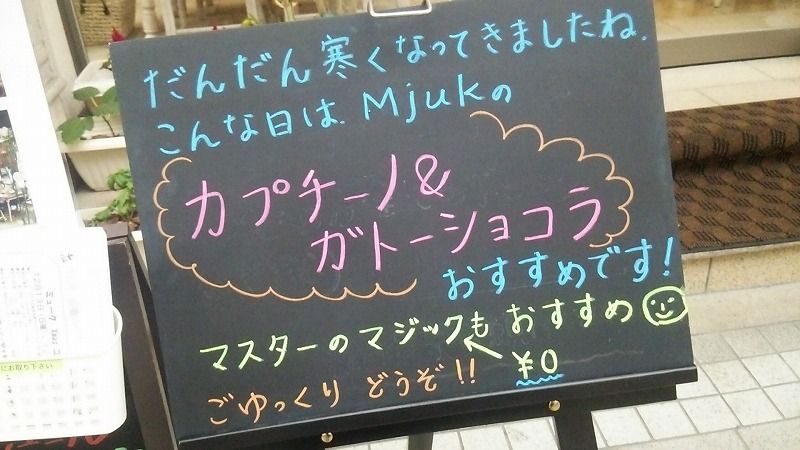 だんだん寒くなってきましたね.
こんな日は.Mjukの
カプチーノ&
ガトーショコラ
おすすめです!
マスターのマジックも おすすめ
¥0
ごゆっくり どうぞ!!
にお取り下さい